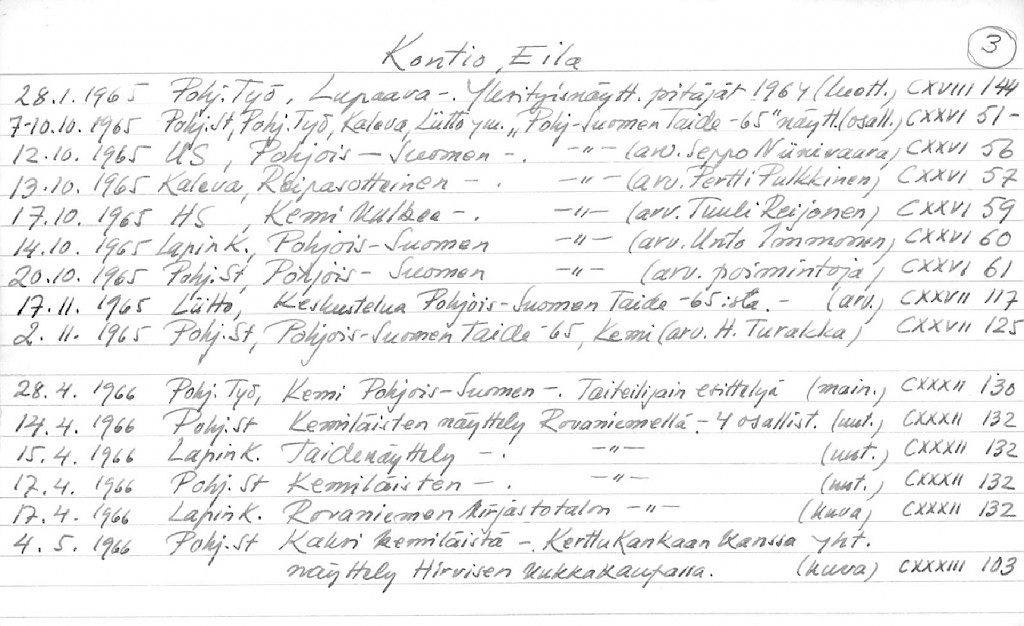 3
Kontio, Eila
28.1.1965 Pohj.Työ, Lupaava -. Yksityisnäytt. pitäjät 1964 (luott.) CXVIII 144
7-10.10.1965 Pohj.St, Pohj.Työ, Kaleva, Liitto ym. "Pohj-Suomen Taide -65" näytt. (osall.) CXXVI 51-
12.10.1965 US, Pohjois-Suomen -. -"- (arv. Seppo Niinivaara) CXXVI 56
13.10.1965 Kaleva, Reipasotteinen -. -"- (arv. Pertti Pulkkinen) CXXVI 57
17.10.1965 HS, Kemi kulkee -. -"- (arv. Tuuli Reijonen) CXXVI 59
14.10.1965 Lapin K., Pohjois-Suomen -"- (arv. Unto Immonen) CXXVI 60
20.10.1965 Pohj.St, Pohjois-Suomen -"- (arv. poimintoja) CXXVI 61
17.11.1965 Liitto, Keskustelua Pohjois-Suomen Taide -65:istä. - (arv.) CXXVII 117
2.11.1965 Pohj.St, Pohjois-Suomen Taide -65, Kemi (arv. H. Turakka) CXXVII 125
28.4.1966 Pohj.Työ, Kemi Pohjois-Suomen -. Taiteilijain esittelyä (main.) CXXXII 130
14.4.1966 Pohj.St Kemiläisten näyttely Rovaniemellä - 4 osallist. (uut.) CXXXII 132
15.4.1966 Lapin K. Taidenäyttely -. -"- (uut.) CXXXII 132
17.4.1966 Pohj.St Kemiläisten -. -"- (uut.) CXXXII 132
17.4.1966 Lapin K. Rovaniemen kirjastotalon -"- (kuva) CXXXII 132
4.5.1966 Pohj.St Kaksi kemiläistä -. Kerttu Kankaan kanssa yht.
näyttely Hirvisen kukkakaupassa. (kuva) CXXXIII 103